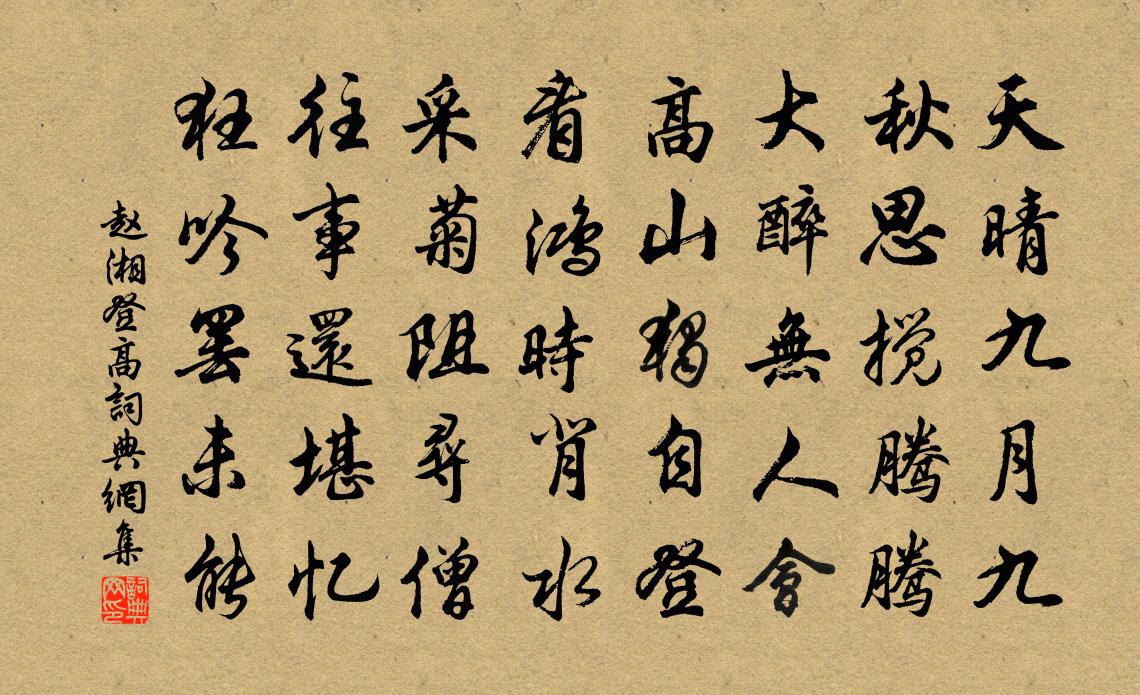 天晴九月九
秋思搅腾腾
大醉無人會
高山獨自登
看鸿時肖水
采菊阻尋僧
往事還堪忆
狂吟罢未能
赵湘登高詞典網集
詞典
网印